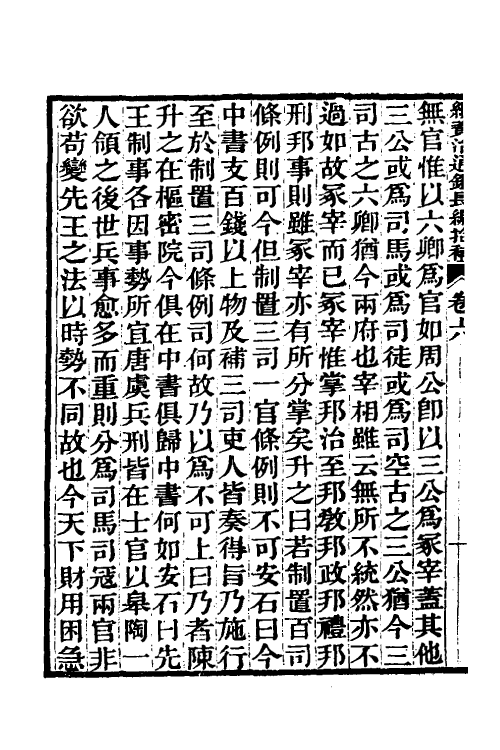 續資治通鑑長編拾補 卷六
無官惟以六卿爲官如周公卽以三公爲冢宰蓋其他
三公或爲司馬或爲司徒或爲司空古之三公猶今三
司古之六卿猶今兩府也宰相雖云無所不統然亦不
過如故冢宰而已冢宰惟掌邦治至邦敎邦政邦禮邦
刑邦事則雖冢宰亦有所分掌矣升之曰若制置百司
條例則可今但制置三司一官條例則不可安石曰今
中書支百錢以上物及補三司吏人皆奏得旨乃施行
至於制置三司條例司何故乃以爲不可上曰乃者陳
升之在樞密院今俱在中書俱歸中書何如安石曰先
王制事各因事勢所宜唐虞兵刑皆在士官以皋陶一
人領之後世兵事愈多而重則分爲司馬司冦兩官非
欲苟變先王之法以時勢不同故也今天下財用困急